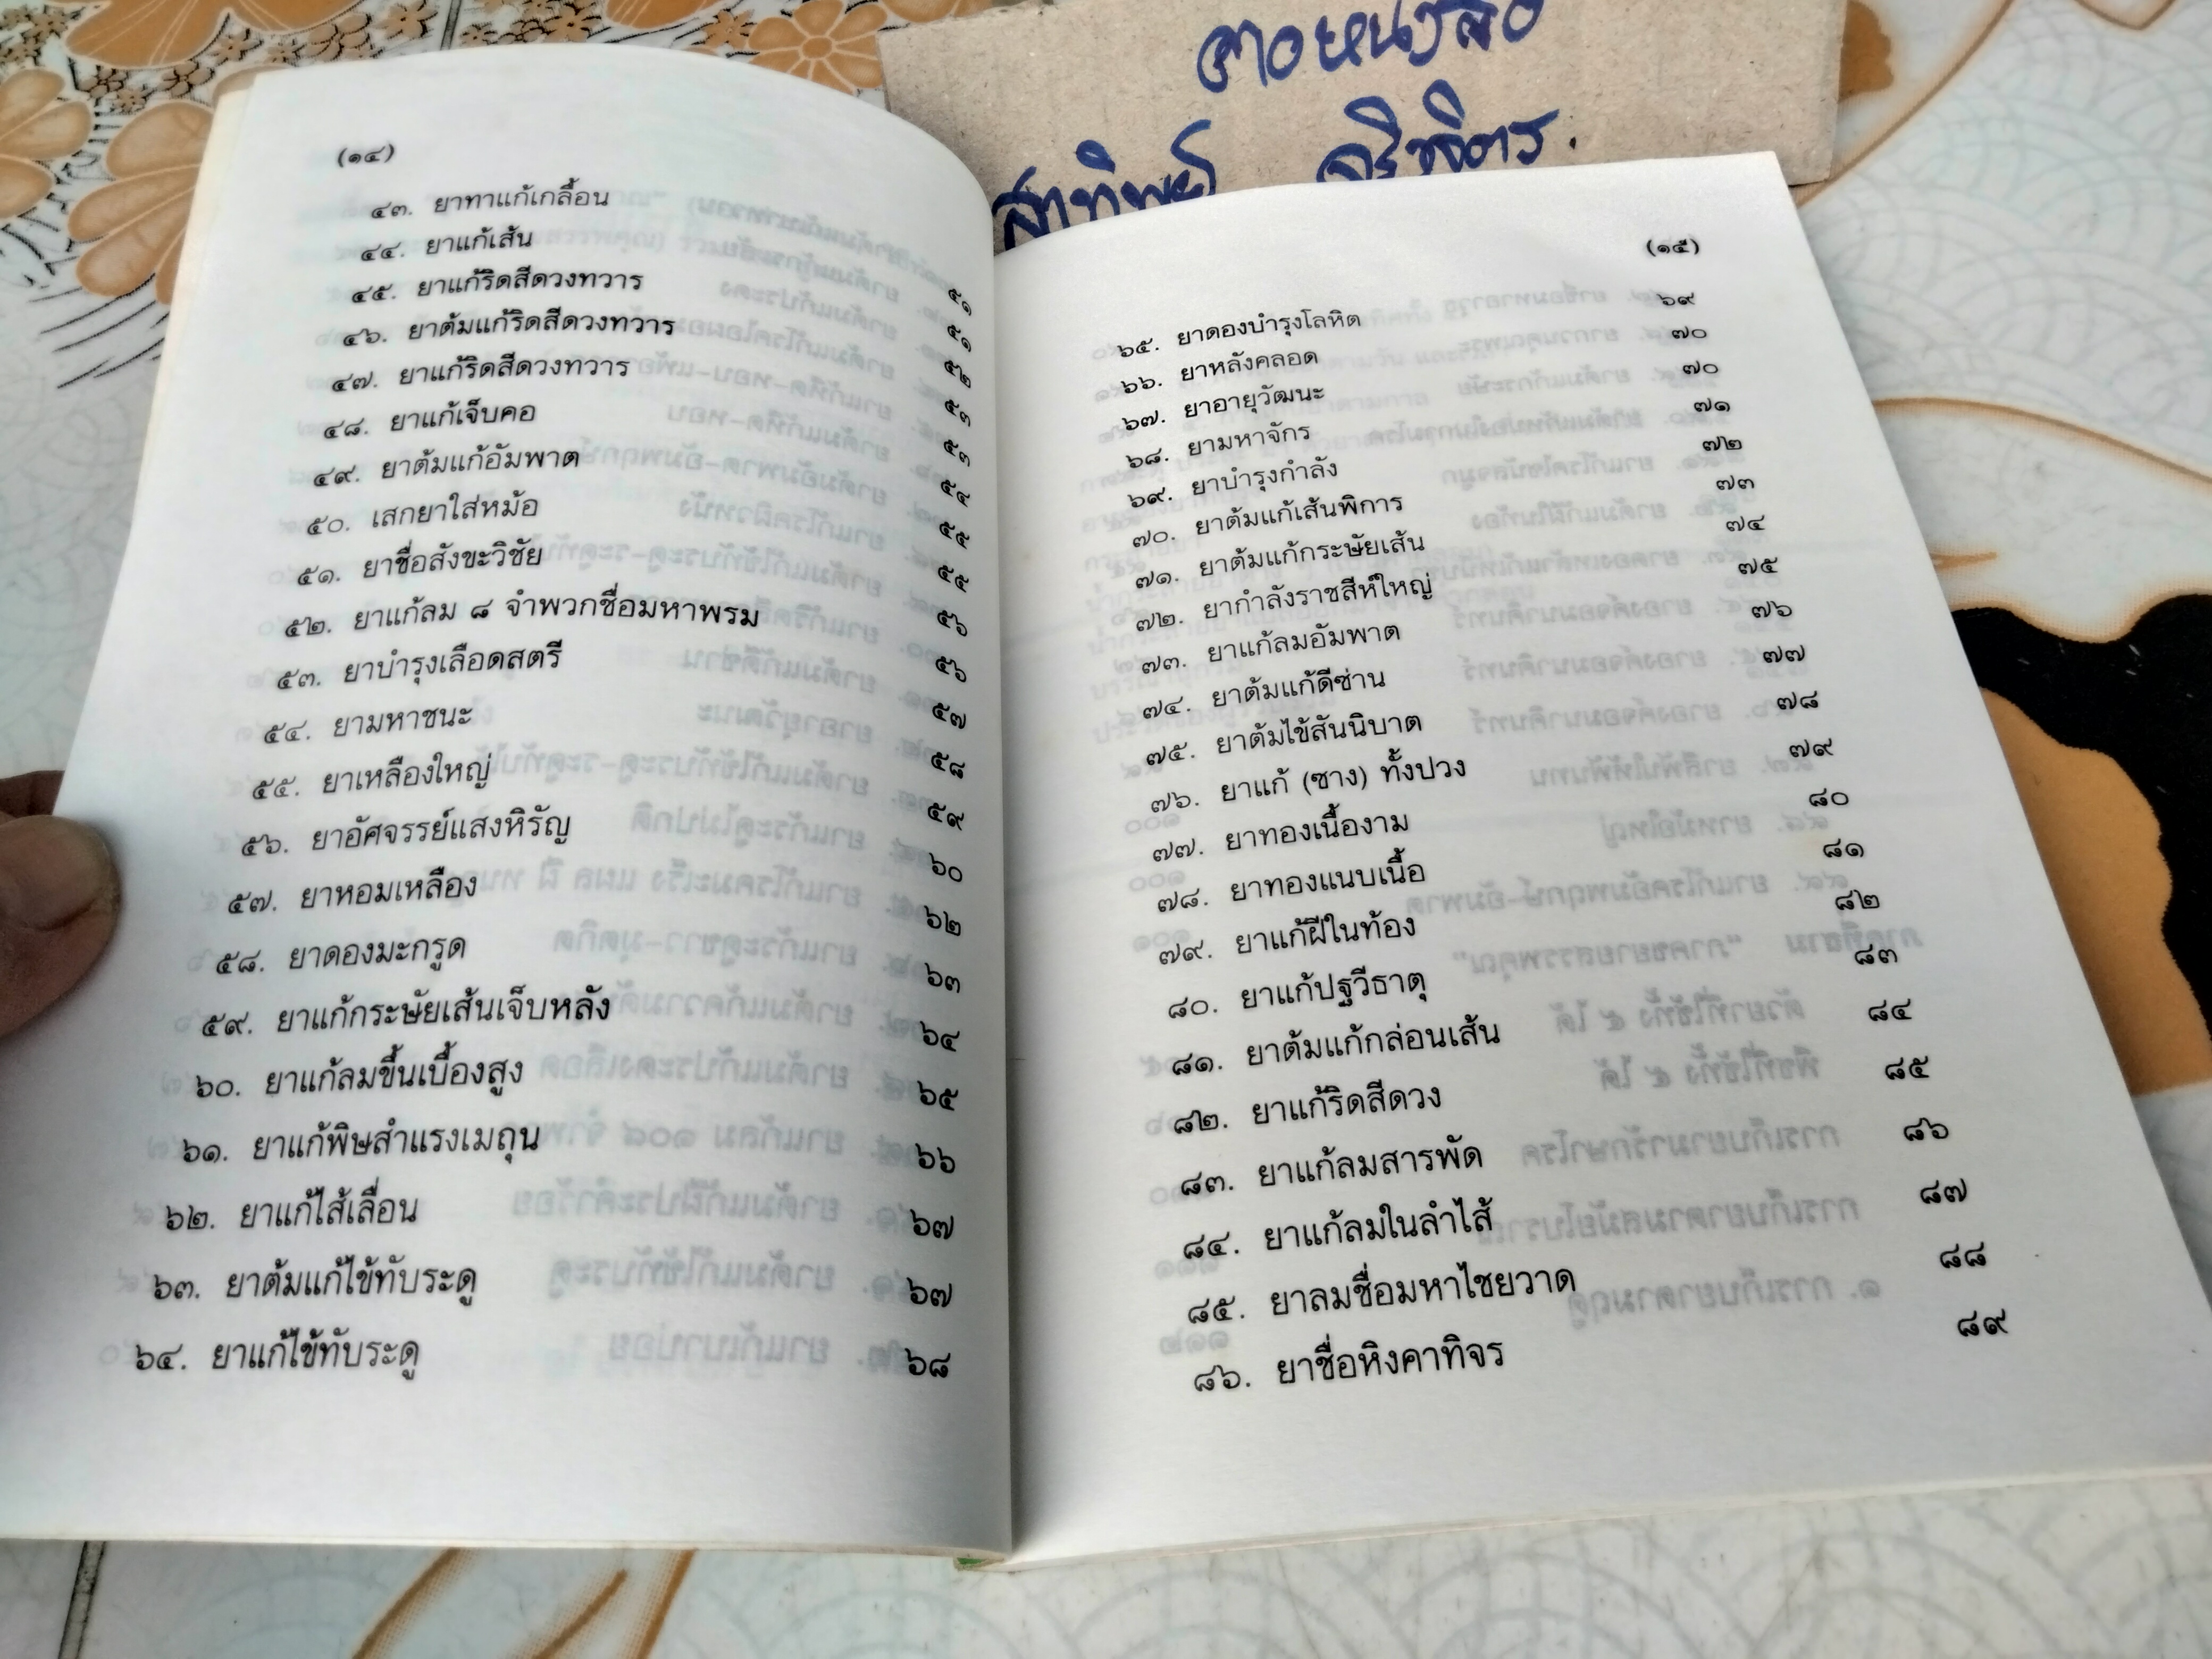 (๑๔)
๔๓. ยาทาแก้เกลื้อน ๕๑
๔๔. ยาแก้เส้น ๕๑
๔๕. ยาแก้ริดสีดวงทวาร ๕๒
๔๖. ยาต้มแก้ริดสีดวงทวาร ๕๓
๔๗. ยาแก้ริดสีดวงทวาร ๕๓
๔๘. ยาแก้เจ็บคอ ๕๔
๔๙. ยาต้มแก้อัมพาต ๕๕
๕๐. เสกยาใส่หม้อ ๕๕
๕๑. ยาชื่อสังขะวิชัย ๕๖
๕๒. ยาแก้ลม ๘ จำพวกชื่อมหาพรม ๕๖
๕๓. ยาบำรุงเลือดสตรี ๕๗
๕๔. ยามหาชนะ ๕๘
๕๕. ยาเหลืองใหญ่ ๕๙
๕๖. ยาอัศจรรย์แสงหิรัญ ๖๐
๕๗. ยาหอมเหลือง ๖๒
๕๘. ยาดองมะกรูด ๖๓
๕๙. ยาแก้กระษัยเส้นเจ็บหลัง ๖๔
๖๐. ยาแก้ลมขึ้นเบื้องสูง ๖๕
๖๑. ยาแก้พิษสำแรงเมถุน ๖๖
๖๒. ยาแก้ไส้เลื่อน ๖๗
๖๓. ยาต้มแก้ไข้ทับระดู ๖๗
๖๔. ยาแก้ไข้ทับระดู ๖๘
(๑๕)
๖๕. ยาดองบำรุงโลหิต ๖๙
๖๖. ยาหลังคลอด ๗๐
๖๗. ยาอายุวัฒนะ ๗๐
๖๘. ยามหาจักร ๗๑
๖๙. ยาบำรุงกำลัง ๗๒
๗๐. ยาต้มแก้เส้นพิการ ๗๓
๗๑. ยาต้มแก้กระษัยเส้น ๗๔
๗๒. ยากำลังราชสีห์ใหญ่ ๗๕
๗๓. ยาแก้ลมอัมพาต ๗๖
๗๔. ยาต้มแก้ดีซ่าน ๗๗
๗๕. ยาต้มไข้สันนิบาต ๗๘
๗๖. ยาแก้ (ซาง) ทั้งปวง ๗๙
๗๗. ยาทองเนื้องาม ๘๐
๗๘. ยาทองแนบเนื้อ ๘๑
๗๙. ยาแก้ฝีในท้อง ๘๒
๘๐. ยาแก้ปฐวีธาตุ ๘๓
๘๑. ยาต้มแก้กล่อนเส้น ๘๔
๘๒. ยาแก้ริดสีดวง ๘๕
๘๓. ยาแก้ลมสารพัด ๘๖
๘๔. ยาแก้ลมในลำไส้ ๘๗
๘๕. ยาลมชื่อมหาไชยวาด ๘๘
๘๖. ยาชื่อหิงคาทิจร ๘๙